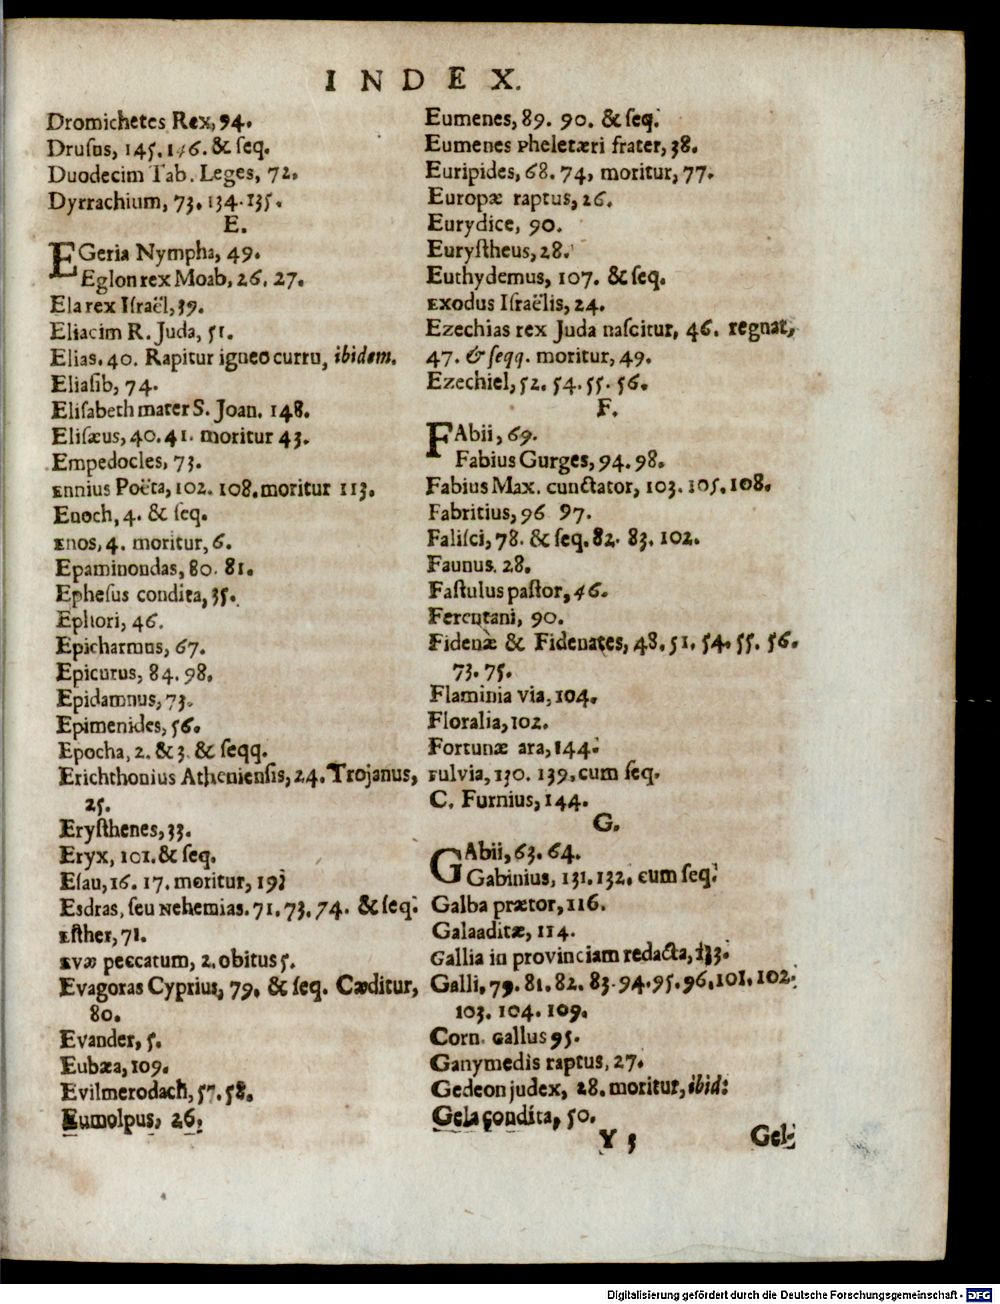 INDEX.
Dromichetes Rex, 94.
Druſus, 145. 146. & ſeq.
Duodecim Tab. Leges, 72.
Dyrrachium, 73. 134. 135.
E.
EGeria Nympha, 49.
Eglon rex Moab, 26. 27.
Ela rex Iſraël, 39.
Eliacim R. Juda, 51.
Elias. 40. Rapitur igneo curru, ibidem.
Eliaſib, 74.
Eliſabeth mater S. Joan. 148.
Eliſæus, 40. 41. moritur 43.
Empedocles, 73.
Ennius Poëta, 102. 108. moritur 113.
Enoch, 4. & ſeq.
Enos, 4. moritur, 6.
Epaminondas, 80. 81.
Epheſus condita, 35.
Ephori, 46.
Epicharmus, 67.
Epicurus, 84. 98.
Epidamnus, 73.
Epimenides, 56.
Epocha, 2. & 3. & ſeqq.
Erichthonius Athenienſis, 24. Trojanus,
25.
Eryſthenes, 33.
Eryx, 101. & ſeq.
Eſau, 16. 17. moritur, 19.
Esdras, ſeu Nehemias. 71. 73. 74. & ſeq.
Eſther, 71.
Evæ peccatum, 2. obitus 5.
Evagoras Cyprius, 79. & ſeq. Cæditur,
80.
Evander, 5.
Eubæa, 109.
Evilmerodach, 57. 58.
Eumolpus, 26.
Eumenes, 89. 90. & ſeq.
Eumenes Pheletæri frater, 38.
Euripides, 68. 74, moritur, 77.
Europæ raptus, 26.
Eurydice, 90.
Euryſtheus, 28.
Euthydemus, 107. & ſeq.
Exodus Iſraëlis, 24.
Ezechias rex Juda naſcitur, 46. regnat,
47. & ſeqq. moritur, 49.
Ezechiel, 52. 54. 55. 56.
F.
FAbii, 69.
Fabius Gurges, 94. 98.
Fabius Max. cunctator, 103. 105. 108.
Fabritius, 96 97.
Faliſci, 78. & ſeq. 82. 83. 102.
Faunus. 28.
Fauſtulus paſtor, 46.
Ferentani, 90.
Fidenæ & Fidenates, 48. 51. 54. 55. 56.
73. 75.
Flaminia via, 104.
Floralia, 102.
Fortunæ ara, 144.
Fulvia, 130. 139. cum ſeq.
C. Furnius, 144.
G.
GAbii, 63. 64.
Gabinius, 131. 132. cum ſeq.
Galba prætor, 116.
Galaaditæ, 114.
Gallia in provinciam redacta, 133.
Galli, 79. 81. 82. 83. 94. 95. 96. 101. 102.
103. 104. 109.
Corn. Gallus 95.
Ganymedis raptus, 27.
Gedeon judex, 28. moritur, ibid.
Gela condita, 50.
Y 3 Gel-
Digitalisierung gefördert durch die Deutsche Forschungsgemeinschaft - DFG